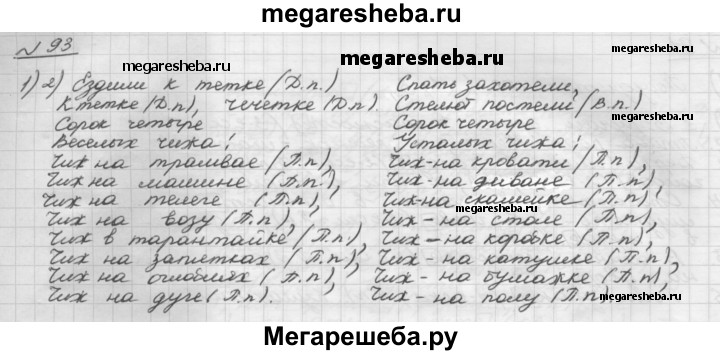 megaresheba.ru
№ 93
megaresheba.ru
megaresheba.ru
1) 2) Ездили к тетке (Д.п.)
К тетке (Д.п), чечетке (Д.п).
Сорок четыре
Веселых чижа!
Чиж на трамвае (П.п),
Чиж на машине (П.п),
Чиж на телеге (П.п),
Чиж на возу (П.п),
Чиж в тарантайке (П.п),
Чиж на запятках (П.п),
Чиж на оглоблях (П.п),
Чиж на дуге (П.п).
Спать захотели,
Стелют постели (В.п.)
Сорок четыре
Усталых чижа!
Чиж - на кровати (П.п),
Чиж - на диване (П.п),
Чиж - на скамейке (П.п),
Чиж - на столе (П.п),
Чиж - на коробке (П.п),
Чиж - на катушке (П.п),
Чиж - на бумажке (П.п),
Чиж - на полу (П.п)
megaresheba.ru
megaresheba.ru
megaresheba.ru
Мегарешеба.ру